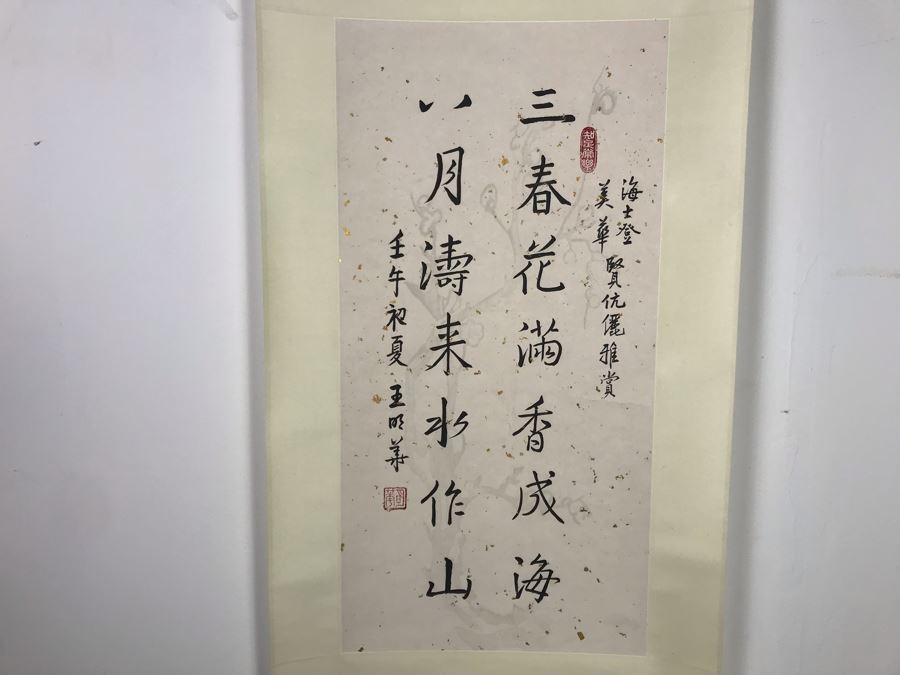 海士登
美華
賢伉儷雅賞
三春花滿香成海
八月濤来水作山
壬午初夏 王明華